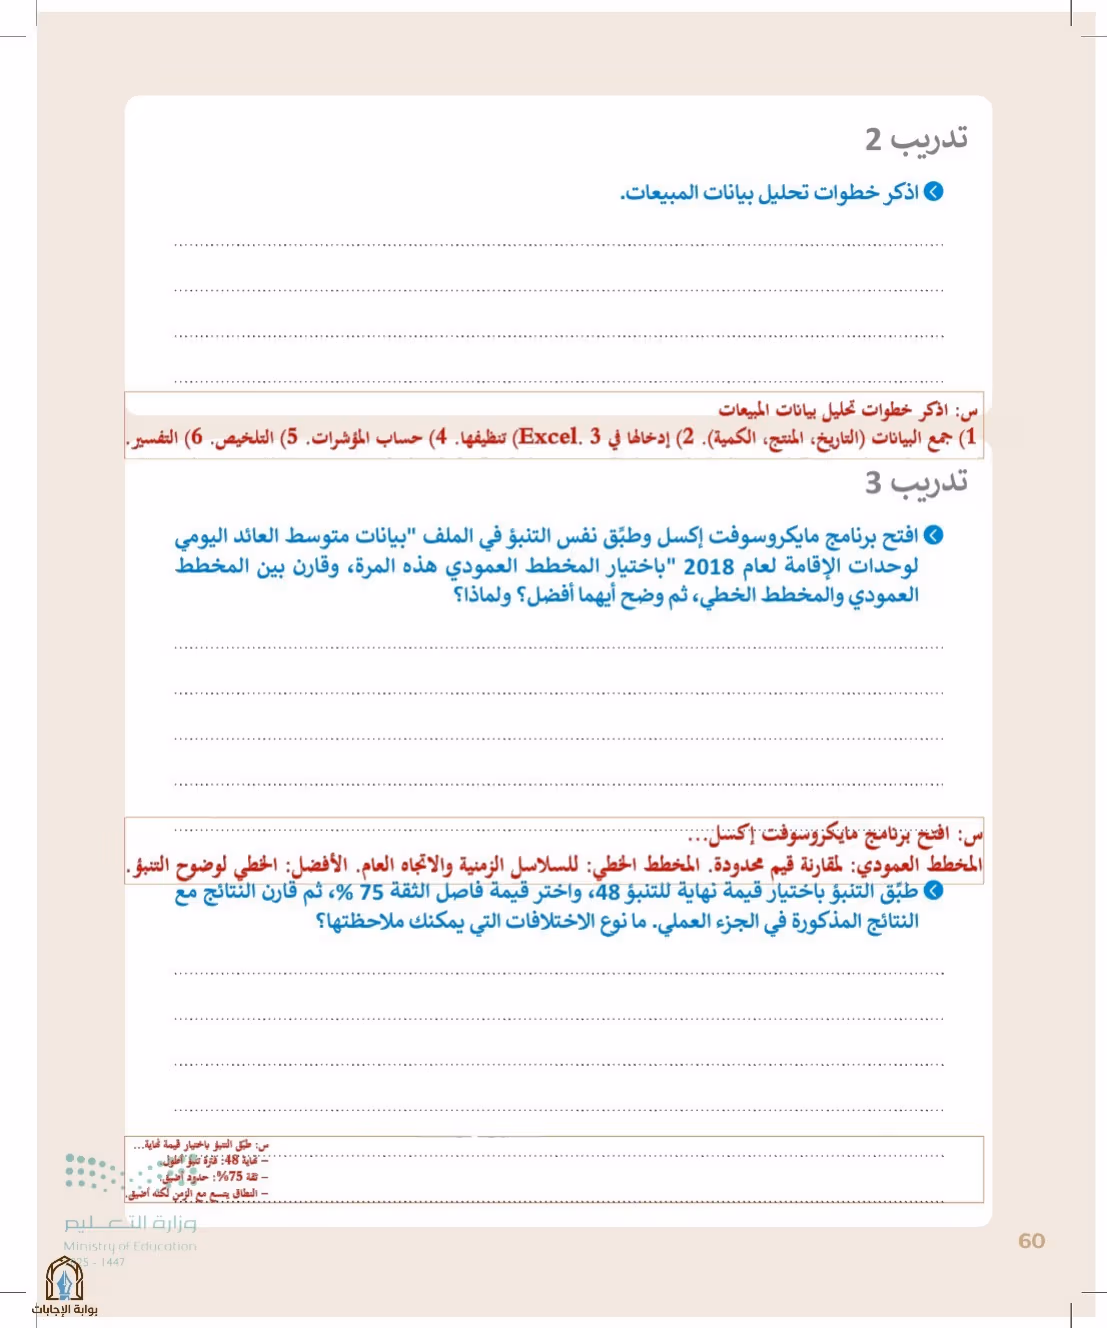 تدريب 2
اذكر خطوات تحليل بيانات المبيعات.
س: اذكر خطوات تحليل بيانات المبيعات
1) جمع البيانات (التاريخ، المنتج، الكمية). 2) إدخالها في Excel. 3) تنظيفها. 4) حساب المؤشرات. 5) التلخيص. 6) التفسير.
تدريب 3
افتح برنامج مايكروسوفت إكسل وطبِّق نفس التنبؤ في الملف "بيانات متوسط العائد اليومي
لوحدات الإقامة لعام 2018 "باختيار المخطط العمودي هذه المرة، وقارن بين المخطط
العمودي والمخطط الخطي، ثم وضح أيهما أفضل؟ ولماذا؟
س: افتح برنامج مايكروسوفت إكسل...
المخطط العمودي: لمقارنة قيم محدودة. المخطط الخطي: للسلاسل الزمنية والاتجاه العام. الأفضل: الخطي لوضوح التنبؤ.
طبِّق التنبؤ باختيار قيمة نهاية للتنبؤ 48، واختر قيمة فاصل الثقة 75 %، ثم قارن النتائج مع
النتائج المذكورة في الجزء العملي. ما نوع الاختلافات التي يمكنك ملاحظتها؟
س: طبّق التنبؤ باختيار قيمة نهاية...
– نهاية 48: فترة تنبؤ أطول.
– ثقة 75%: حدود أضيق.
– النطاق يتسع مع الزمن لكنه أضيق.
وزارة التعليم
Ministry of Education
2025 - 1447
60
بوابة الإجابات